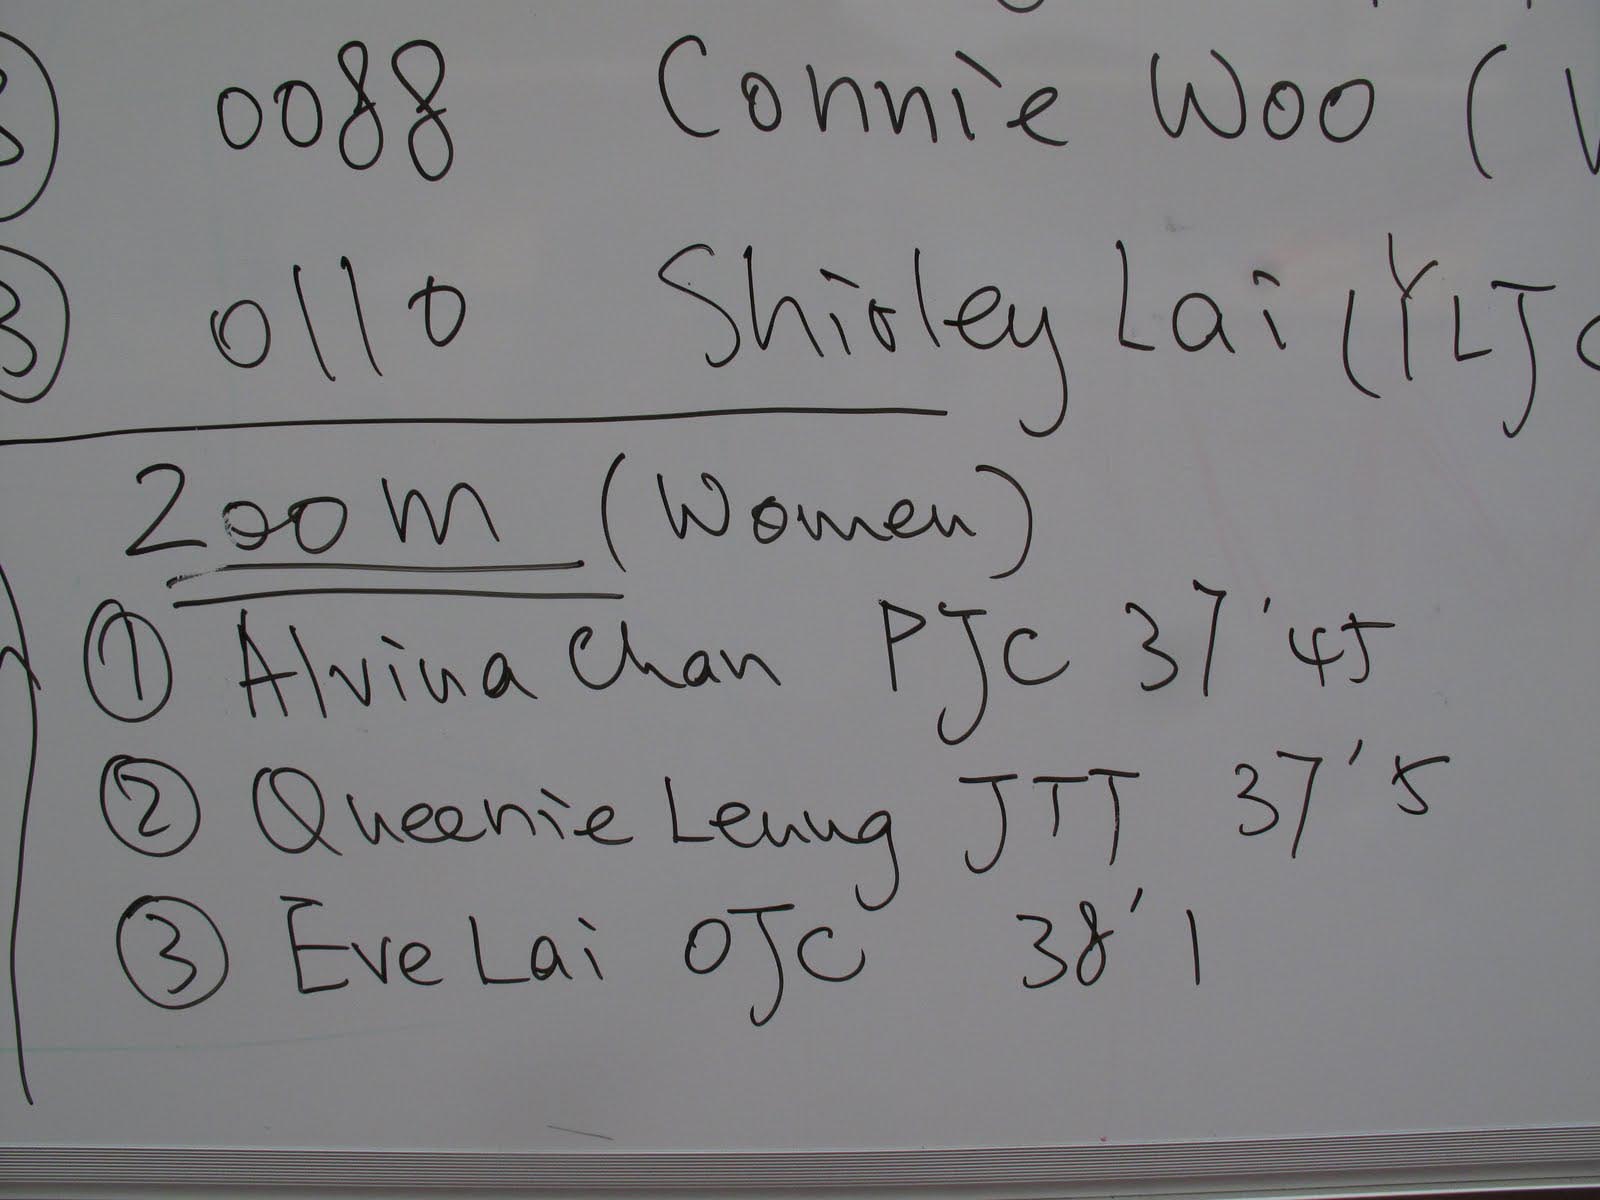 0088 Connie Woo (
③ 0110 Shirley Lai (YLJ
200m (Women)
① Alvina Chan PJC 37'45
② Queenie Leung JTT 37'5
③ Eve Lai OJC 38'1